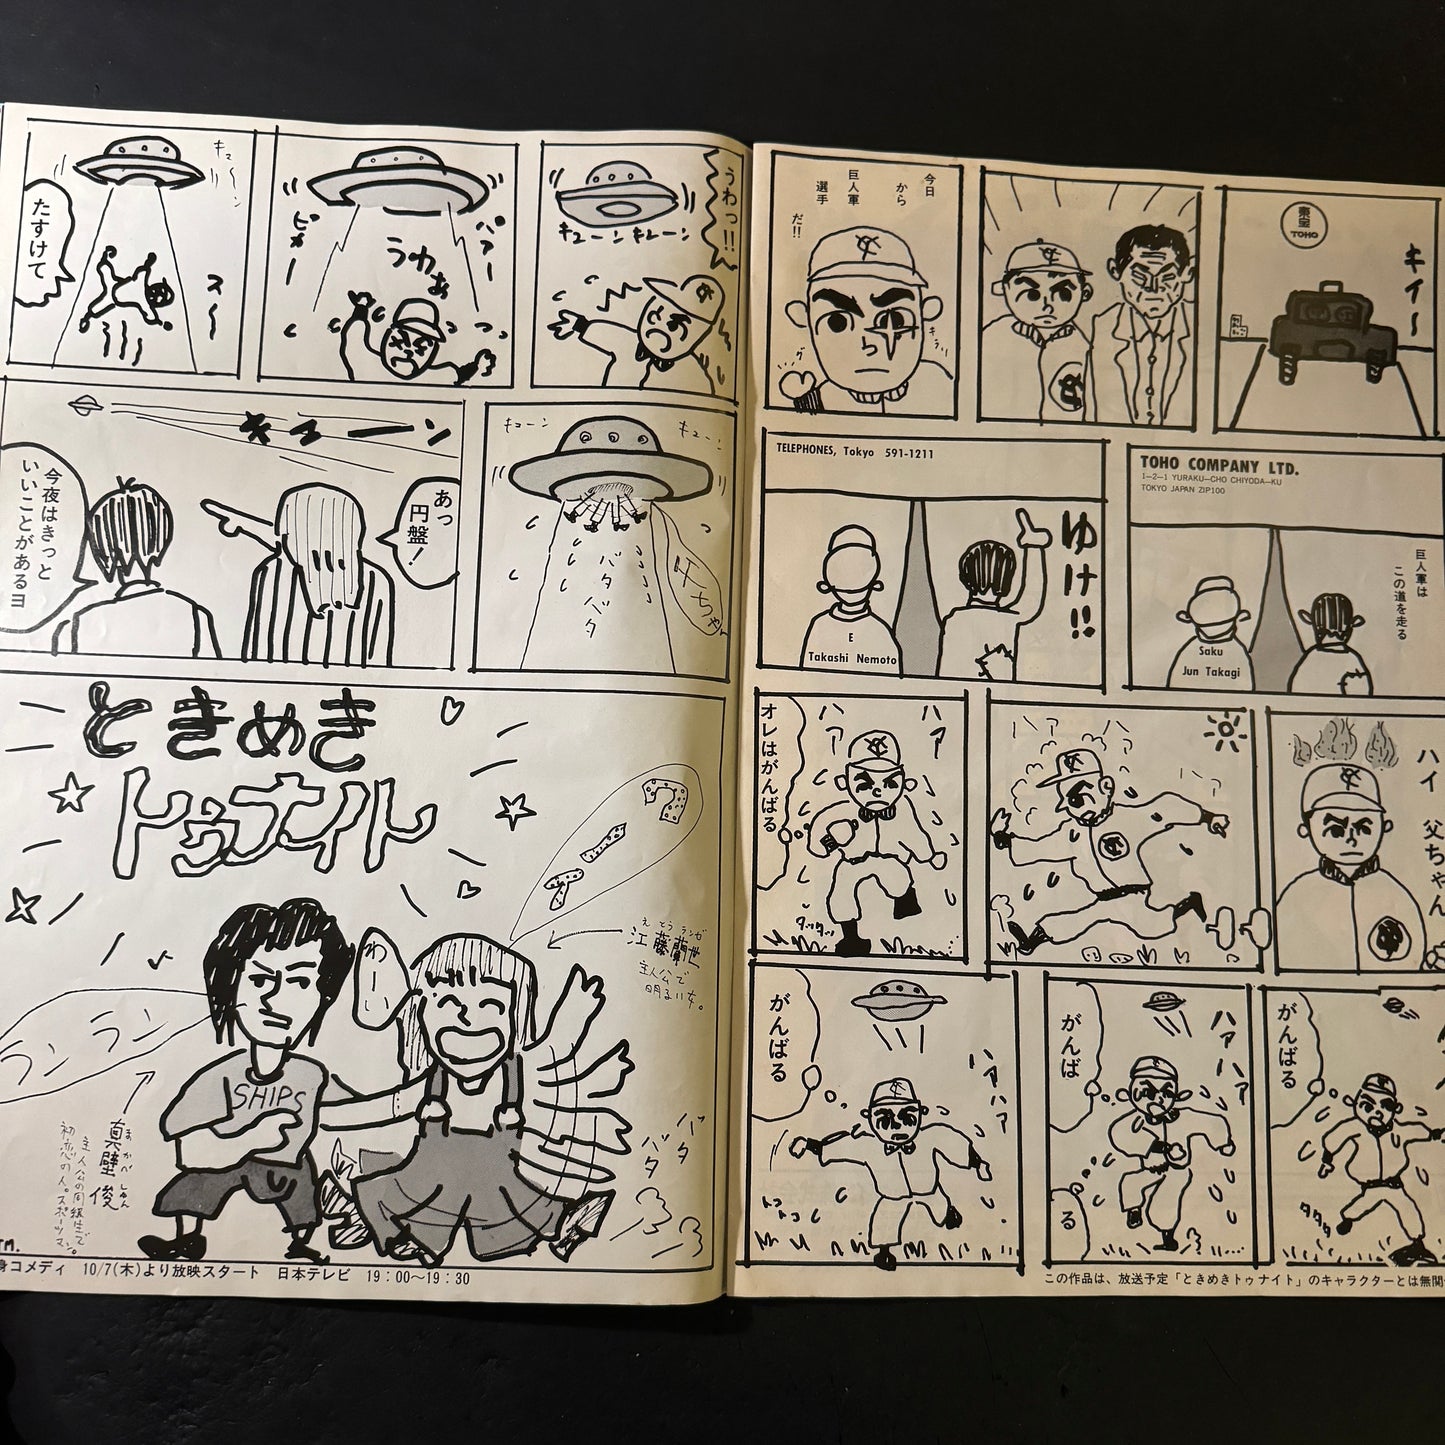 今日
から
巨人軍
選手
だ!!
キラリ
グ
東宝
TOHO
キイ〜
TELEPHONES, Tokyo 591-1211
ゆけ!!
E
Takashi Nemoto
TOHO COMPANY LTD.
1-2-1 YURAKU-CHO CHIYODA-KU
TOKYO JAPAN ZIP100
巨人軍は
この道を走る
Saku
Jun Takagi
オレはがんばる
ハァ
ハァ
タッタッ
ハァ
ハァ
ハァ
ハイ 父ちゃん
がんばる
ハァハァ
トコトコ
がんば
る
ハァハァ
がんばる
タタタ
この作品は、放送予定「ときめきトゥナイト」のキャラクターとは無関
うわっ!!
キューンキューン
ビメー
うわぁ
バァー
キュ〜ン
たすけて
ス〜
キューン
あっ
円盤!
今夜はきっと
いいことがあるヨ
キューン
キューン
バタバタ
ときめき
トゥナイト
わーい
えとうランゼ
江藤蘭世
主人公で
明るい女。
ランラン
SHIPS
まかべしゅん
真壁 俊
主人公の同級生で
初恋の人。スポーツマン。
バタバタ
TM.
身コメディ 10/7(木)より放映スタート 日本テレビ 19:00〜19:30